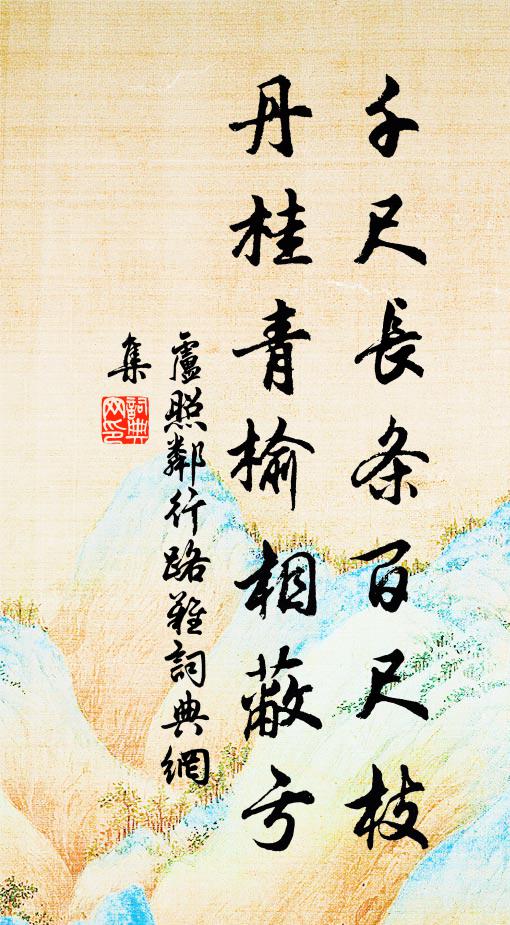 千尺長条百尺枝
丹桂青榆相蔽亏
盧照鄰行路難詞典網
集
詞典网印